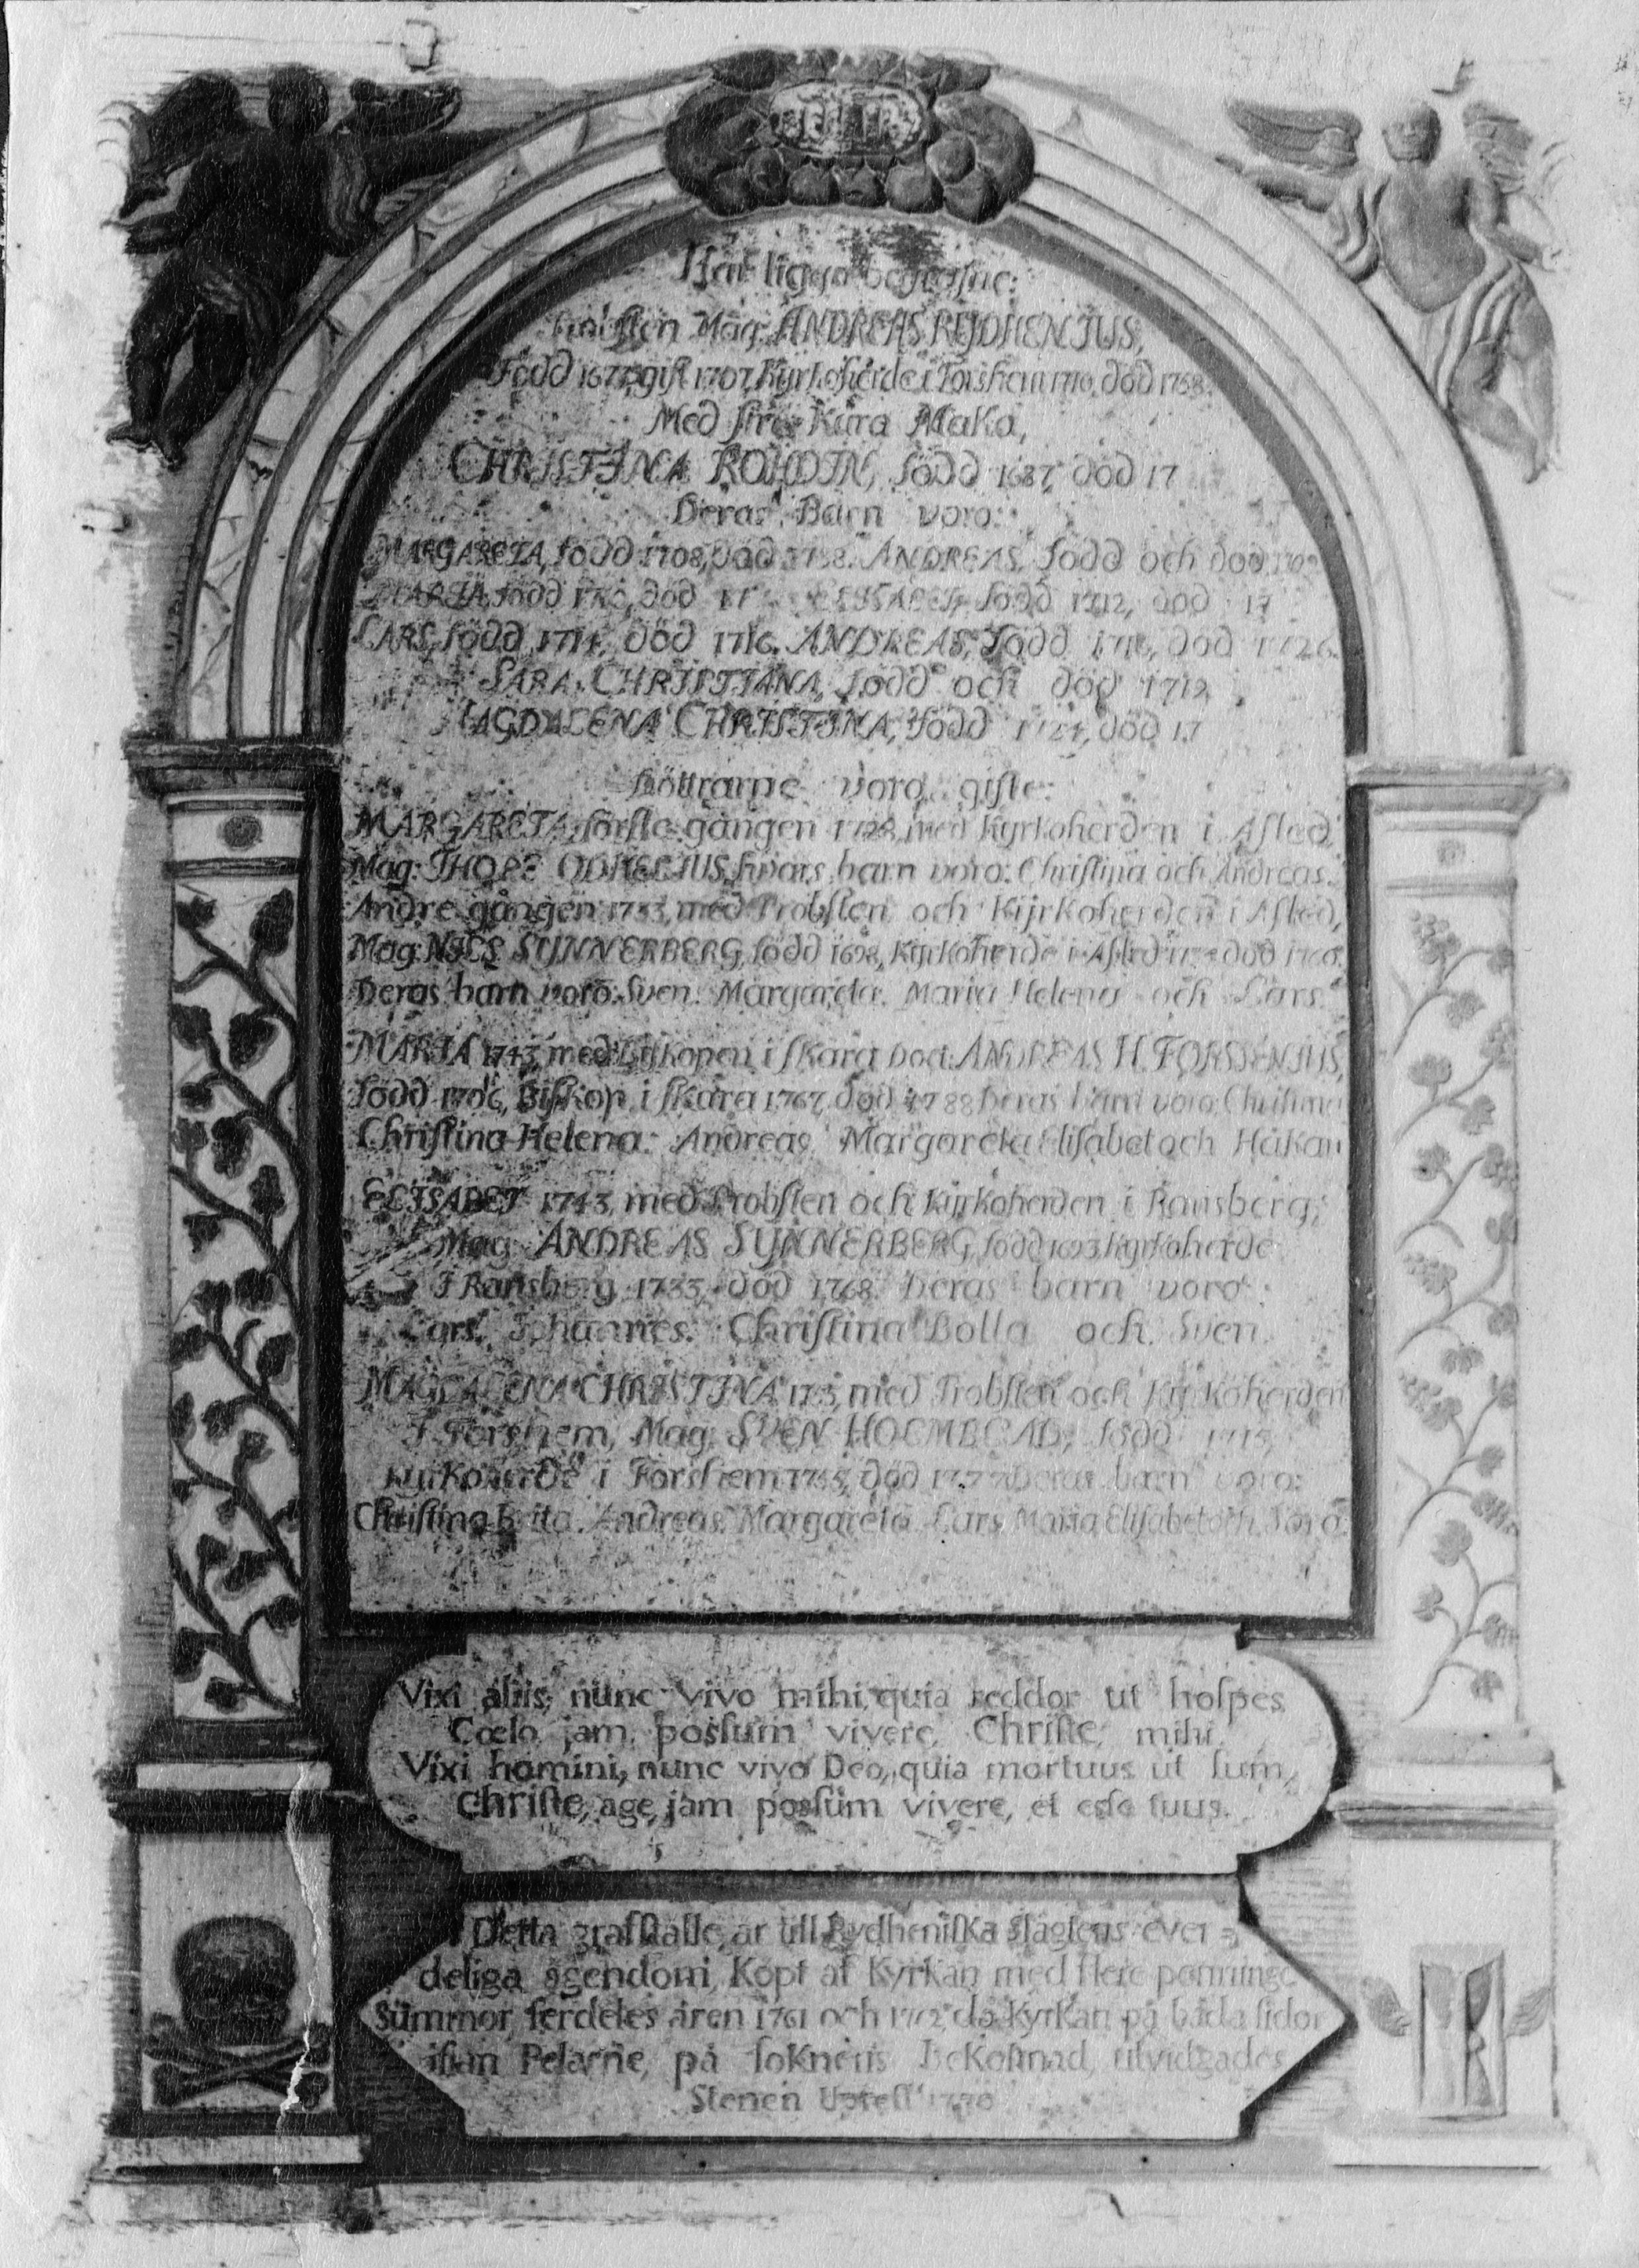 Här ligga begrafne:
Mag: ANDREAS RYDHENIUS,
Född 1677, gift 1707, Kyrkoherde i Forshem 1710, död 1738.
Med sine Kära Maka,
CHRISTINA ROHDIN, född 1687, död 17
Deras Barn voro:
MARGARETA, född 1708, död 1758. ANDREAS, född och död
MARIA, född död 17 ELISABET, född 1712, död 17
LARS, född 1714, död 1716. ANDREAS, född 1716, död 1726.
SARA CHRISTIANA, född och död 1719
MAGDALENA CHRISTINA, född 1724, död 17
Döttrarne voro gifte:
MARGARETA, förste gången 1728, med Kyrkoherden i Asled,
Mag: THORE ODHELIUS, hvars barn voro: Christina och Andreas.
Andre gången 1733, med Probsten och Kyrkoherden i Asled,
Mag: NILS SYNNERBERG, född 1698, Kyrkoherde i Asled död
Deras barn voro: Sven. Margareta. Maria Helena och Lars.
MARIA 1743, med Biskopen i Skara Doct: ANDREAS H. FORSSENIUS,
född 1706, Biskop i Skara 1767, död 1788 Deras barn voro: Christina
Christina Helena. Andreas. Margareta Elisabet och Håkan
ELISABET 1743, med Probsten och Kyrkoherden i Ransberg,
Mag: ANDREAS SYNNERBERG, född 1693, Kyrkoherde
I Ransberg 1733, död 1768. Deras barn voro:
Lars. Johannes. Christina Bolla och Sven.
MAGDALENA CHRISTINA med Probsten och Kyrkoherden
I Forshem, Mag: SVEN HOLMBLAD, född 1715,
Kyrkoherde i Forshem 1755, död Deras barn voro:
Christina Brita. Andreas. Margareta. Lars. Maria Elisabet och Sara.
Vixi aliis, nunc vivo mihi, quia reddor ut hospes
Cœlo, jam possum vivere, Christe, mihi.
Vixi homini, nunc vivo Deo, quia mortuus ut sum,
Christe, age, jam possum vivere, et esse tuus.
Detta grafställe, är till Rydheniska Slägtens ever-
deliga ägendom, Köpt af Kyrkan med flere penninge
Summor, serdeles åren 1761 och 1762, då Kyrkan på båda sidor
Pelarne, på Soknens Bekostnad, utvidgades
Stenen Uprest